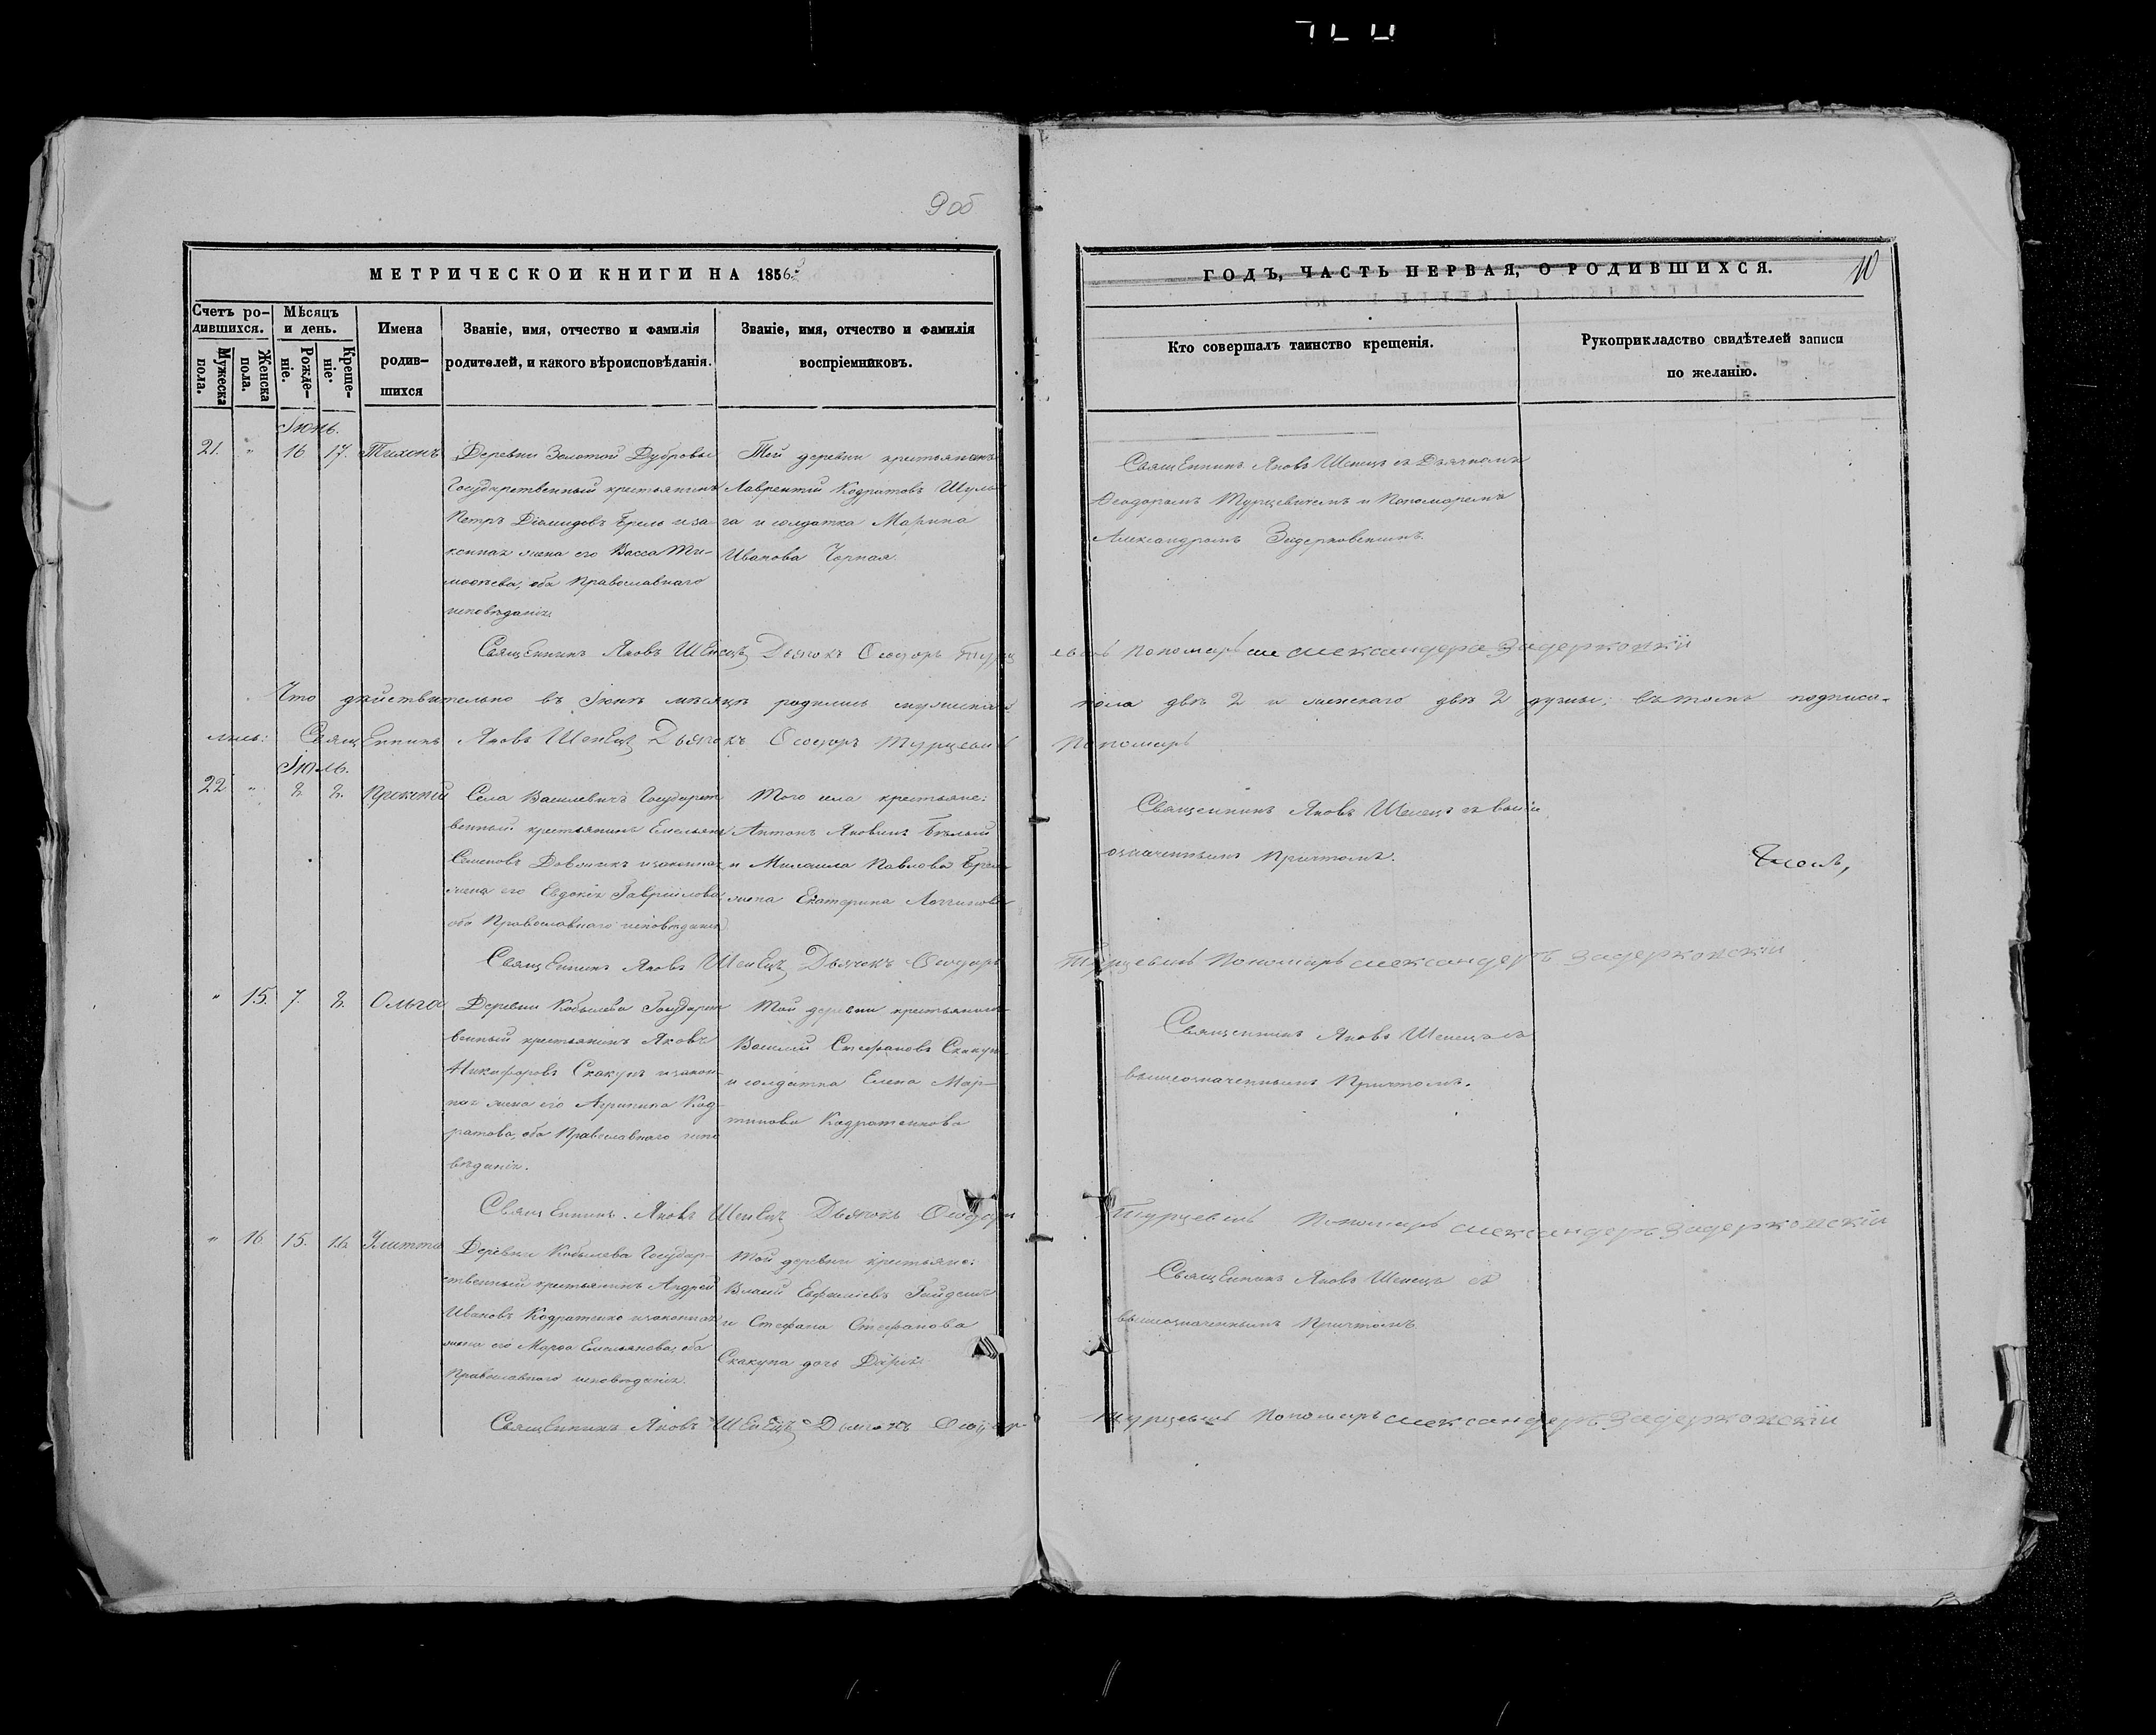 9 об
МЕТРИЧЕСКОЙ КНИГИ НА 1856
ГОДЪ, ЧАСТЬ ПЕРВАЯ, О РОДИВШИХСЯ.
10
Счетъ родившихся.
Мужеска пола.
Женска пола.
Мѣсяцъ и день.
Рожденіе.
Крещеніе.
Имена
родив-
шихся
Званіе, имя, отчество и фамилія
родителей, и какого вѣроисповѣданія.
Званіе, имя, отчество и фамилія
воспріемниковъ.
Кто совершалъ таинство крещенія.
Рукоприкладство свидѣтелей записи
по желанію.
Іюнь.
21. " 16 17. Тихонъ
Деревни Золотой Дубровы
Государственный крестьянинъ
Петръ Діомидовъ Брель и за-
конная жена его Васса Ти-
моѳеева, оба Православнаго
исповѣданія.
Той деревни крестьянинъ
Лаврентій Кодратовъ Шуль-
га и солдатка Марина
Иванова Черная
Священникъ Яковъ Шенецъ съ Дьячкомъ
Ѳеодоромъ Турцевичемъ и Пономаремъ
Александромъ Задерковскимъ
Священникъ Яковъ Шенецъ Дьячокъ Ѳеодоръ Пономарь Александеръ Задерковскій
Что дѣйствительно въ Іюнѣ мѣсяцѣ родилось мужеска пола двѣ 2 и женскаго двѣ 2 души; въ томъ подписа-
лись: Священникъ Яковъ Шенецъ Дьячокъ Ѳеодоръ Турцевичъ Пономарь
Іюль.
22 " 8. 8. Прокопій
Села Василевичъ Государст
венный крестьянинъ Емельянъ
Семеновъ и законная
жена его Евдокія Гавріилова
оба Православнаго исповѣданія
Того села крестьяне:
Антонъ Яковлевъ Бѣлый
и Михаила Павлова Бреля
жена Екатерина Логгинова
Священникъ Яковъ Шенецъ съ выше
означеннымъ Причтомъ.
Іюль,
Священникъ Яковъ Шенецъ Дьячокъ Ѳеодоръ Турцевичъ Пономарь Александеръ Задерковскій
" 15. 7. 8. Ольга
Деревни Кобылева Государст
венный крестьянинъ Яковъ
Никифоровъ Скакунъ и закон-
ная жена его Агрипина Код-
ратова, оба Православнаго испо
вѣданія.
Той деревни крестьянинъ
Василій Стефановъ Скакунъ
и солдатка Елена Мар-
тинова Кодратенкова
Священникъ Яковъ Шенецъ съ
вышеозначеннымъ Причтомъ.
Священникъ Яковъ Шенецъ Дьячокъ Ѳеодоръ Турцевичъ Пономарь Александеръ Задерковскій
" 16. 15. 16. Улитта
Деревни Кобылева Государ-
ственный крестьянинъ Андрей
Ивановъ Кодратенко и законная
жена его Марѳа Емельянова, оба
Православнаго исповѣданія.
Той деревни крестьяне:
Власій Евфиміевъ
и Стефана Стефанова
Скакуна дочь Дарія
Священникъ Яковъ Шенецъ съ
вышеозначеннымъ Причтомъ
Священникъ Яковъ Шенецъ Дьячокъ Ѳеодоръ Турцевичъ Пономарь Александеръ Задерковскій